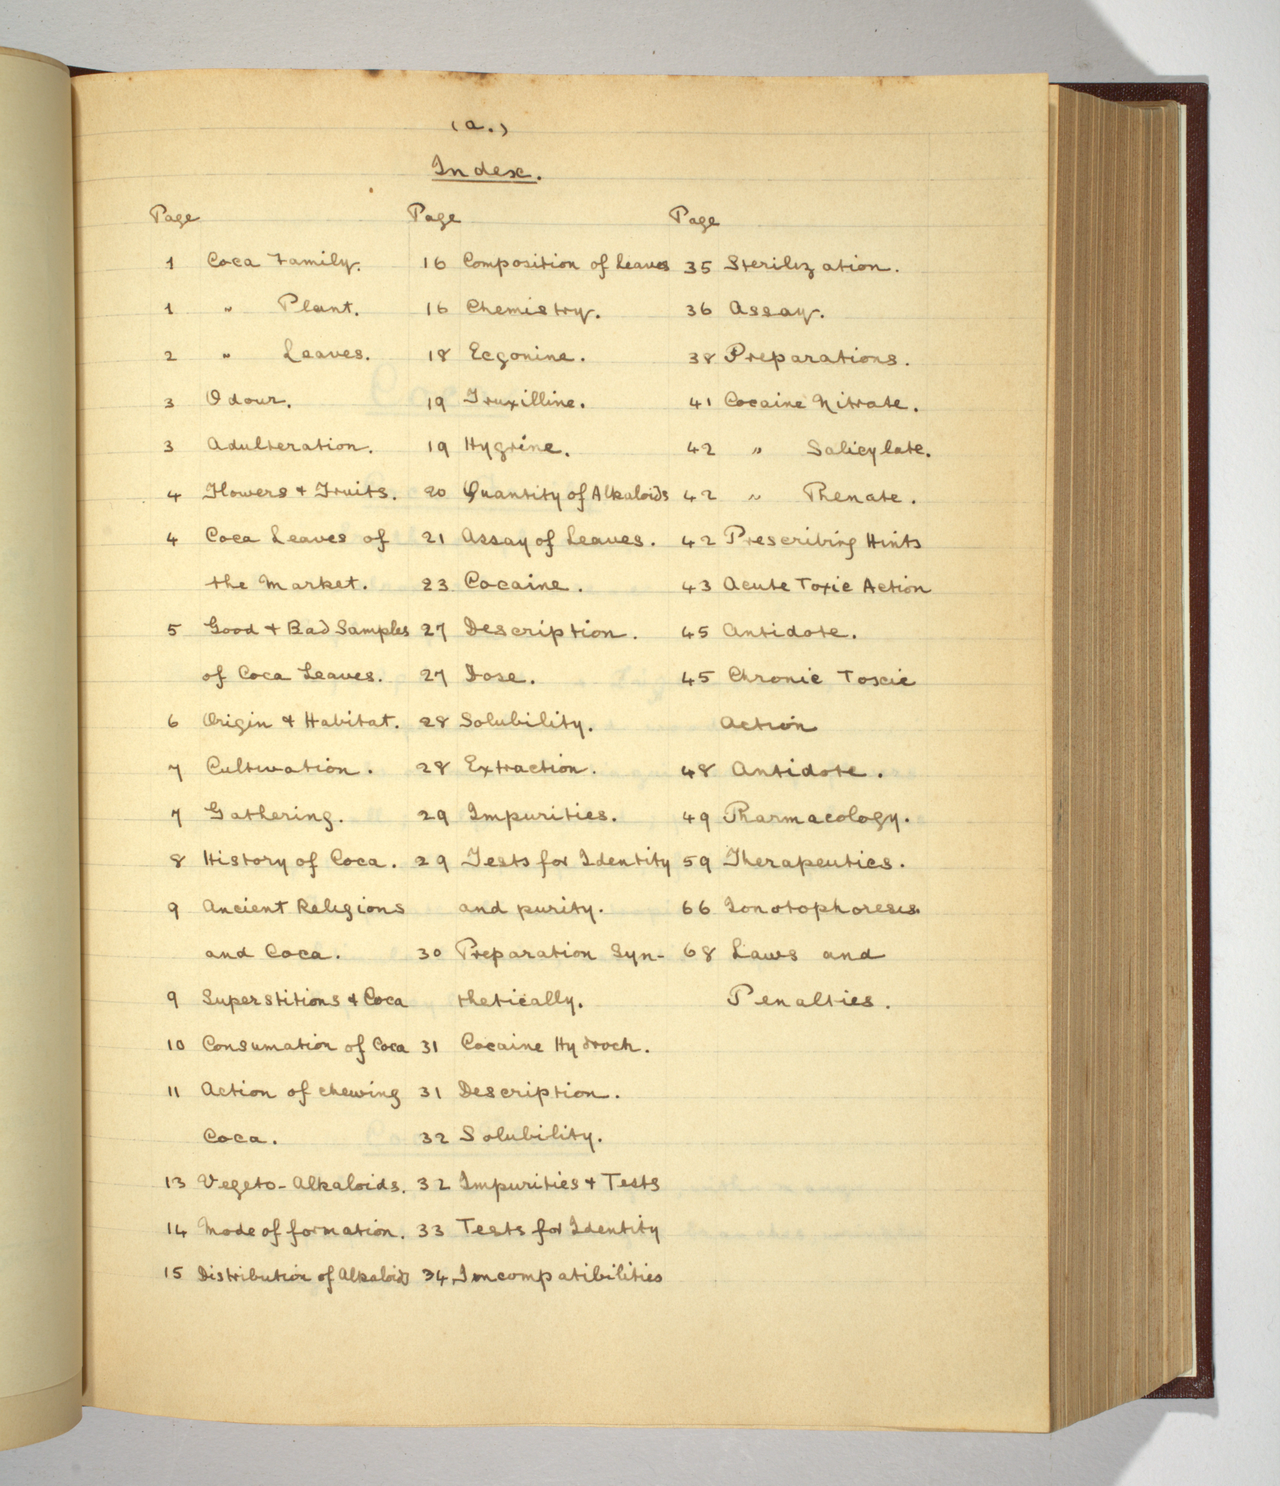 (a.)
Index.
Page
1 Coca Family.
1 " Plant.
2 " Leaves.
3 Odour.
3 Adulteration.
4 Flowers + Fruits.
4 Coca Leaves of
the Market.
5 Good + Bad Samples
of Coca Leaves.
6 Origin + Habitat.
7 Cultivation.
7 Gathering.
8 History of Coca.
9 Ancient Religions
and Coca.
9 Superstitions + Coca
10 Consumation of Coca
11 Action of chewing
Coca.
13 Vegeto-Alkaloids.
14 Mode of formation.
15 Distribution of Alkaloids
Page
16 Composition of Leaves
16 Chemistry.
18 Ecgonine.
19 Truxilline.
19 Hygrine.
20 Quantity of Alkaloids
21 Assay of Leaves.
23 Cocaine.
27 Description.
27 Dose.
28 Solubility.
28 Extraction.
29 Impurities.
29 Tests for Identity
and purity.
30 Preparation Syn-
thetically.
31 Cocaine Hydroch.
31 Description.
32 Solubility.
32 Impurities + Tests
33 Tests for Identity
34 Incompatibilities
Page
35 Sterilization.
36 Assay.
38 Preparations.
41 Cocaine Nitrate.
42 " Salicylate.
42 " Phenate.
42 Prescribing Hints
43 Acute Toxic Action
45 Antidote.
45 Chronic Toxic
Action
48 Antidote.
49 Pharmacology.
59 Therapeutics.
66 Ionotophoresis.
68 Laws and
Penalties.